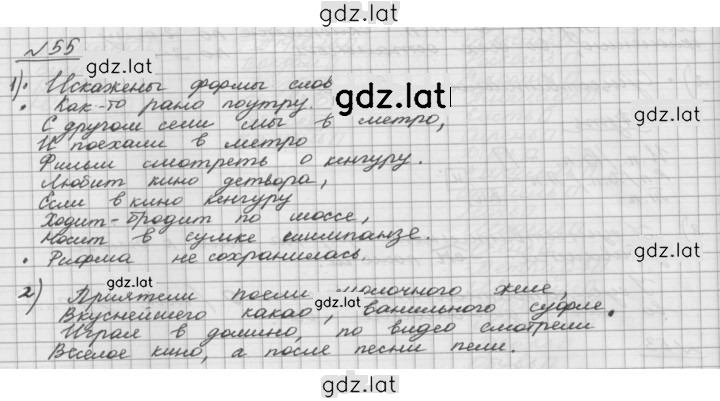 gdz.lat
№55
gdz.lat
1). Искажены формы слов
• Как-то рано поутру.
gdz.lat
С другом сели мы в метро,
И поехали в метро
Фильм смотреть о кенгуру.
Любит кино детвора,
Если в кино кенгуру
Ходит-бродит по шоссе,
Носит в сумке шимпанзе.
gdz.lat
• Рифма не сохранилась.
gdz.lat
2) Приятели поели молочного желе,
gdz.lat
Вкуснейшего какао, ванильного суфле.
Играли в домино, по видео смотрели
Веселое кино, а после песни пели.
gdz.lat